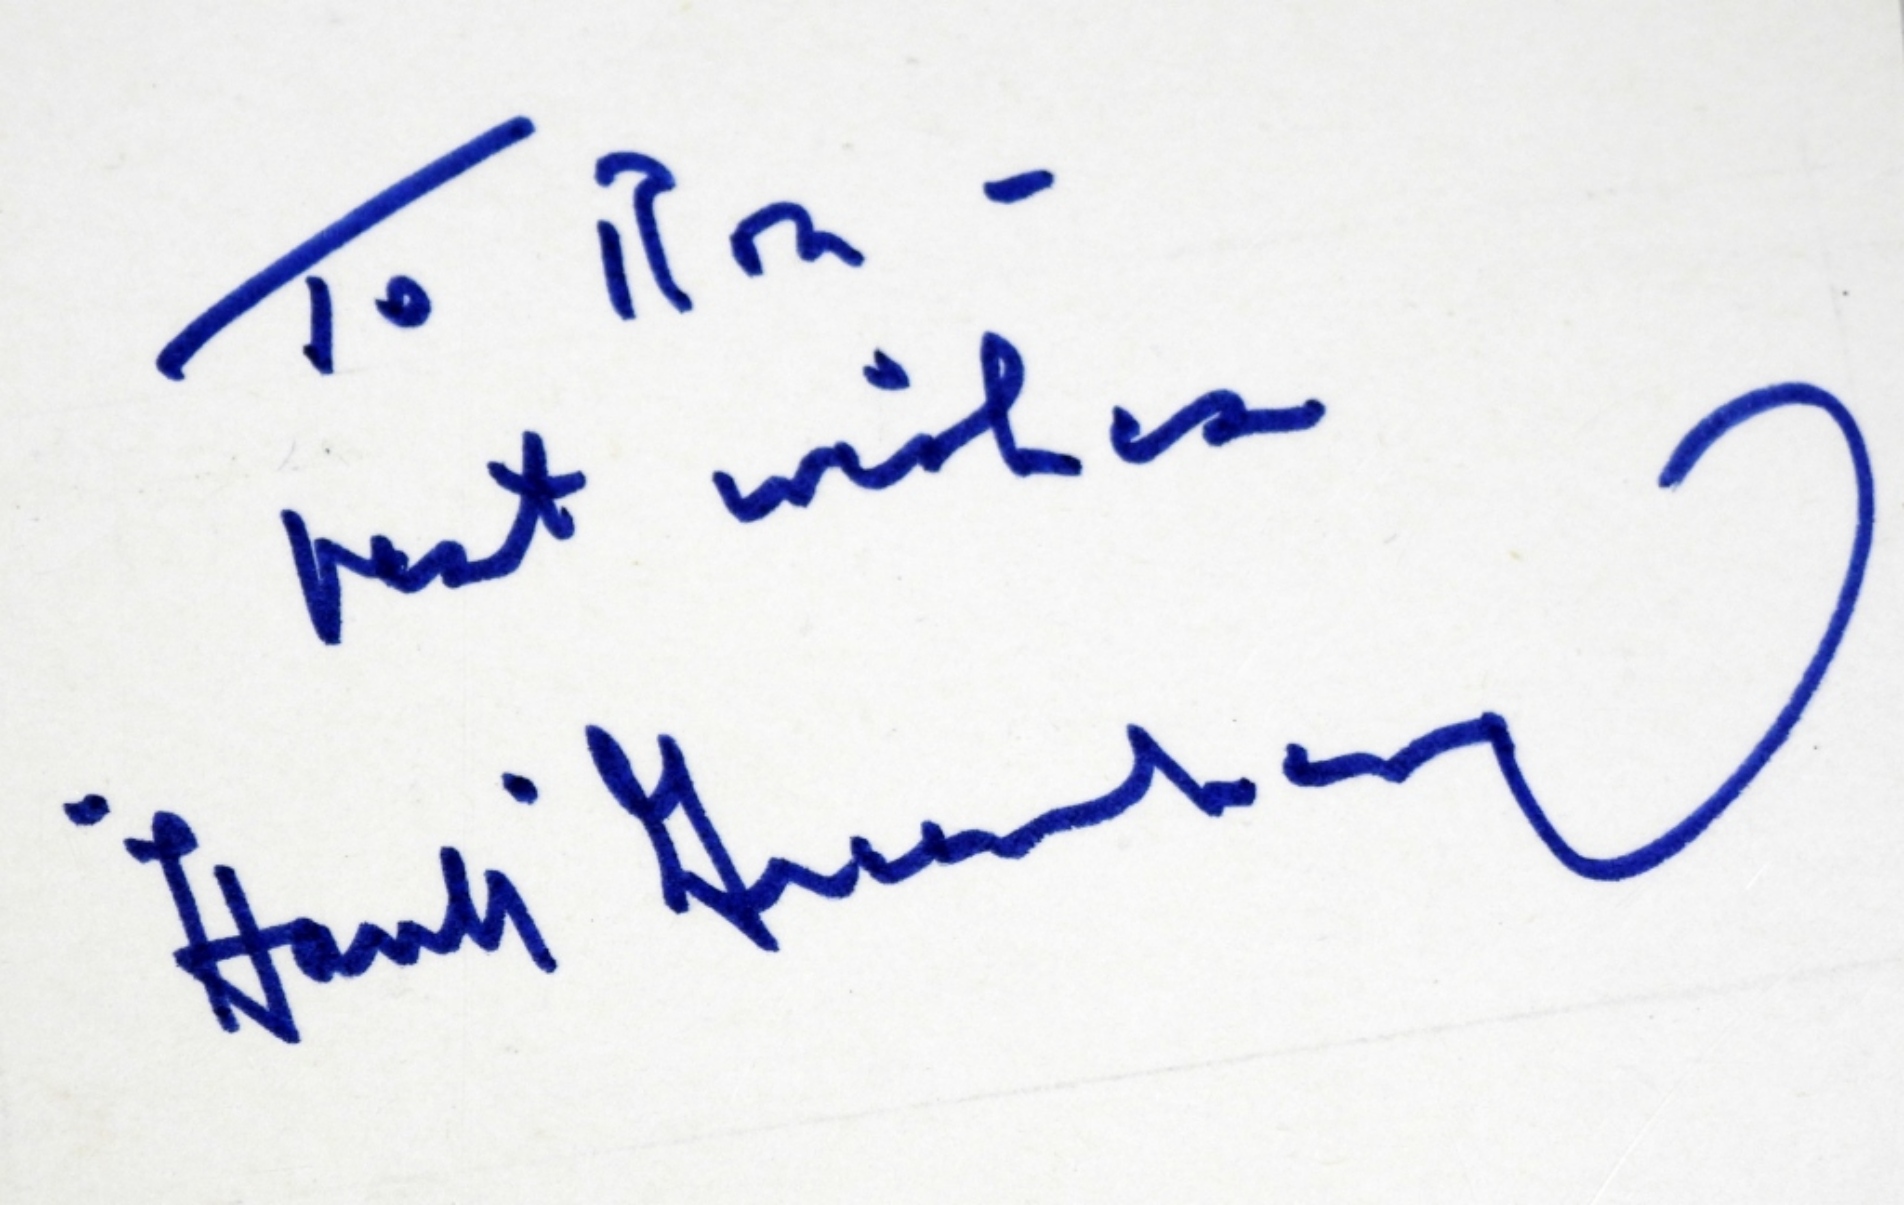 To Ron -
best wishes
"Hank" Greenberg